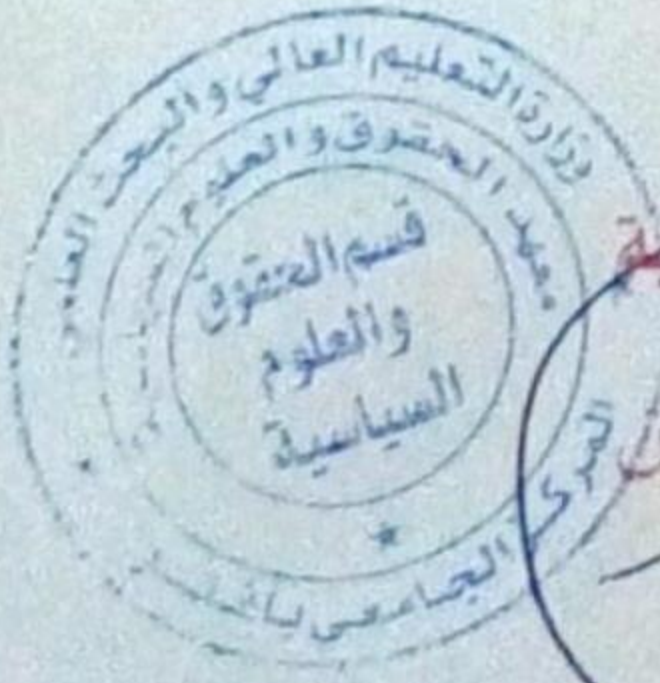 وزارة التعليم العالي والبحث العلمي
معهد الحقوق والعلوم السياسية
قسم الحقوق
والعلوم
السياسية
المركز الجامعي